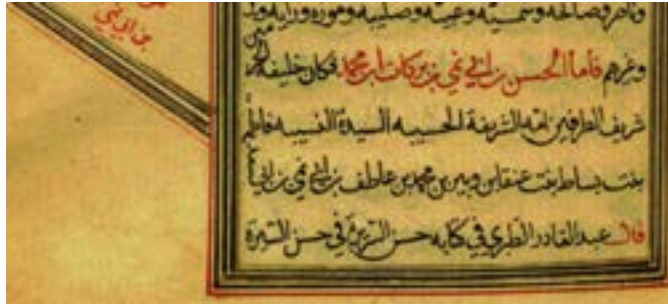 بن ابي نمي
وغيرهم فأما الحسن بن ابي نمي بن بركات ابن محمد فكان خليفة
شريف الطرفين امه الشريفة الحسيبه السيدة النسيبه فاطمة
بنت بساط بنت عنقا بن وبير بن محمد بن عاطف بن ابي نمي بن ابي
قال عبد القادر الطبري في كتابه حسن السريرة في حسن السيرة